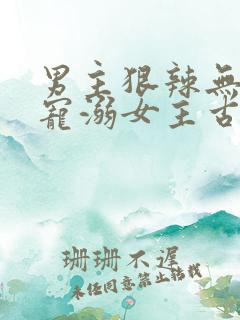 男主狠辣無
寵溺女主古
珊珊不遲
未經同意禁止轉載